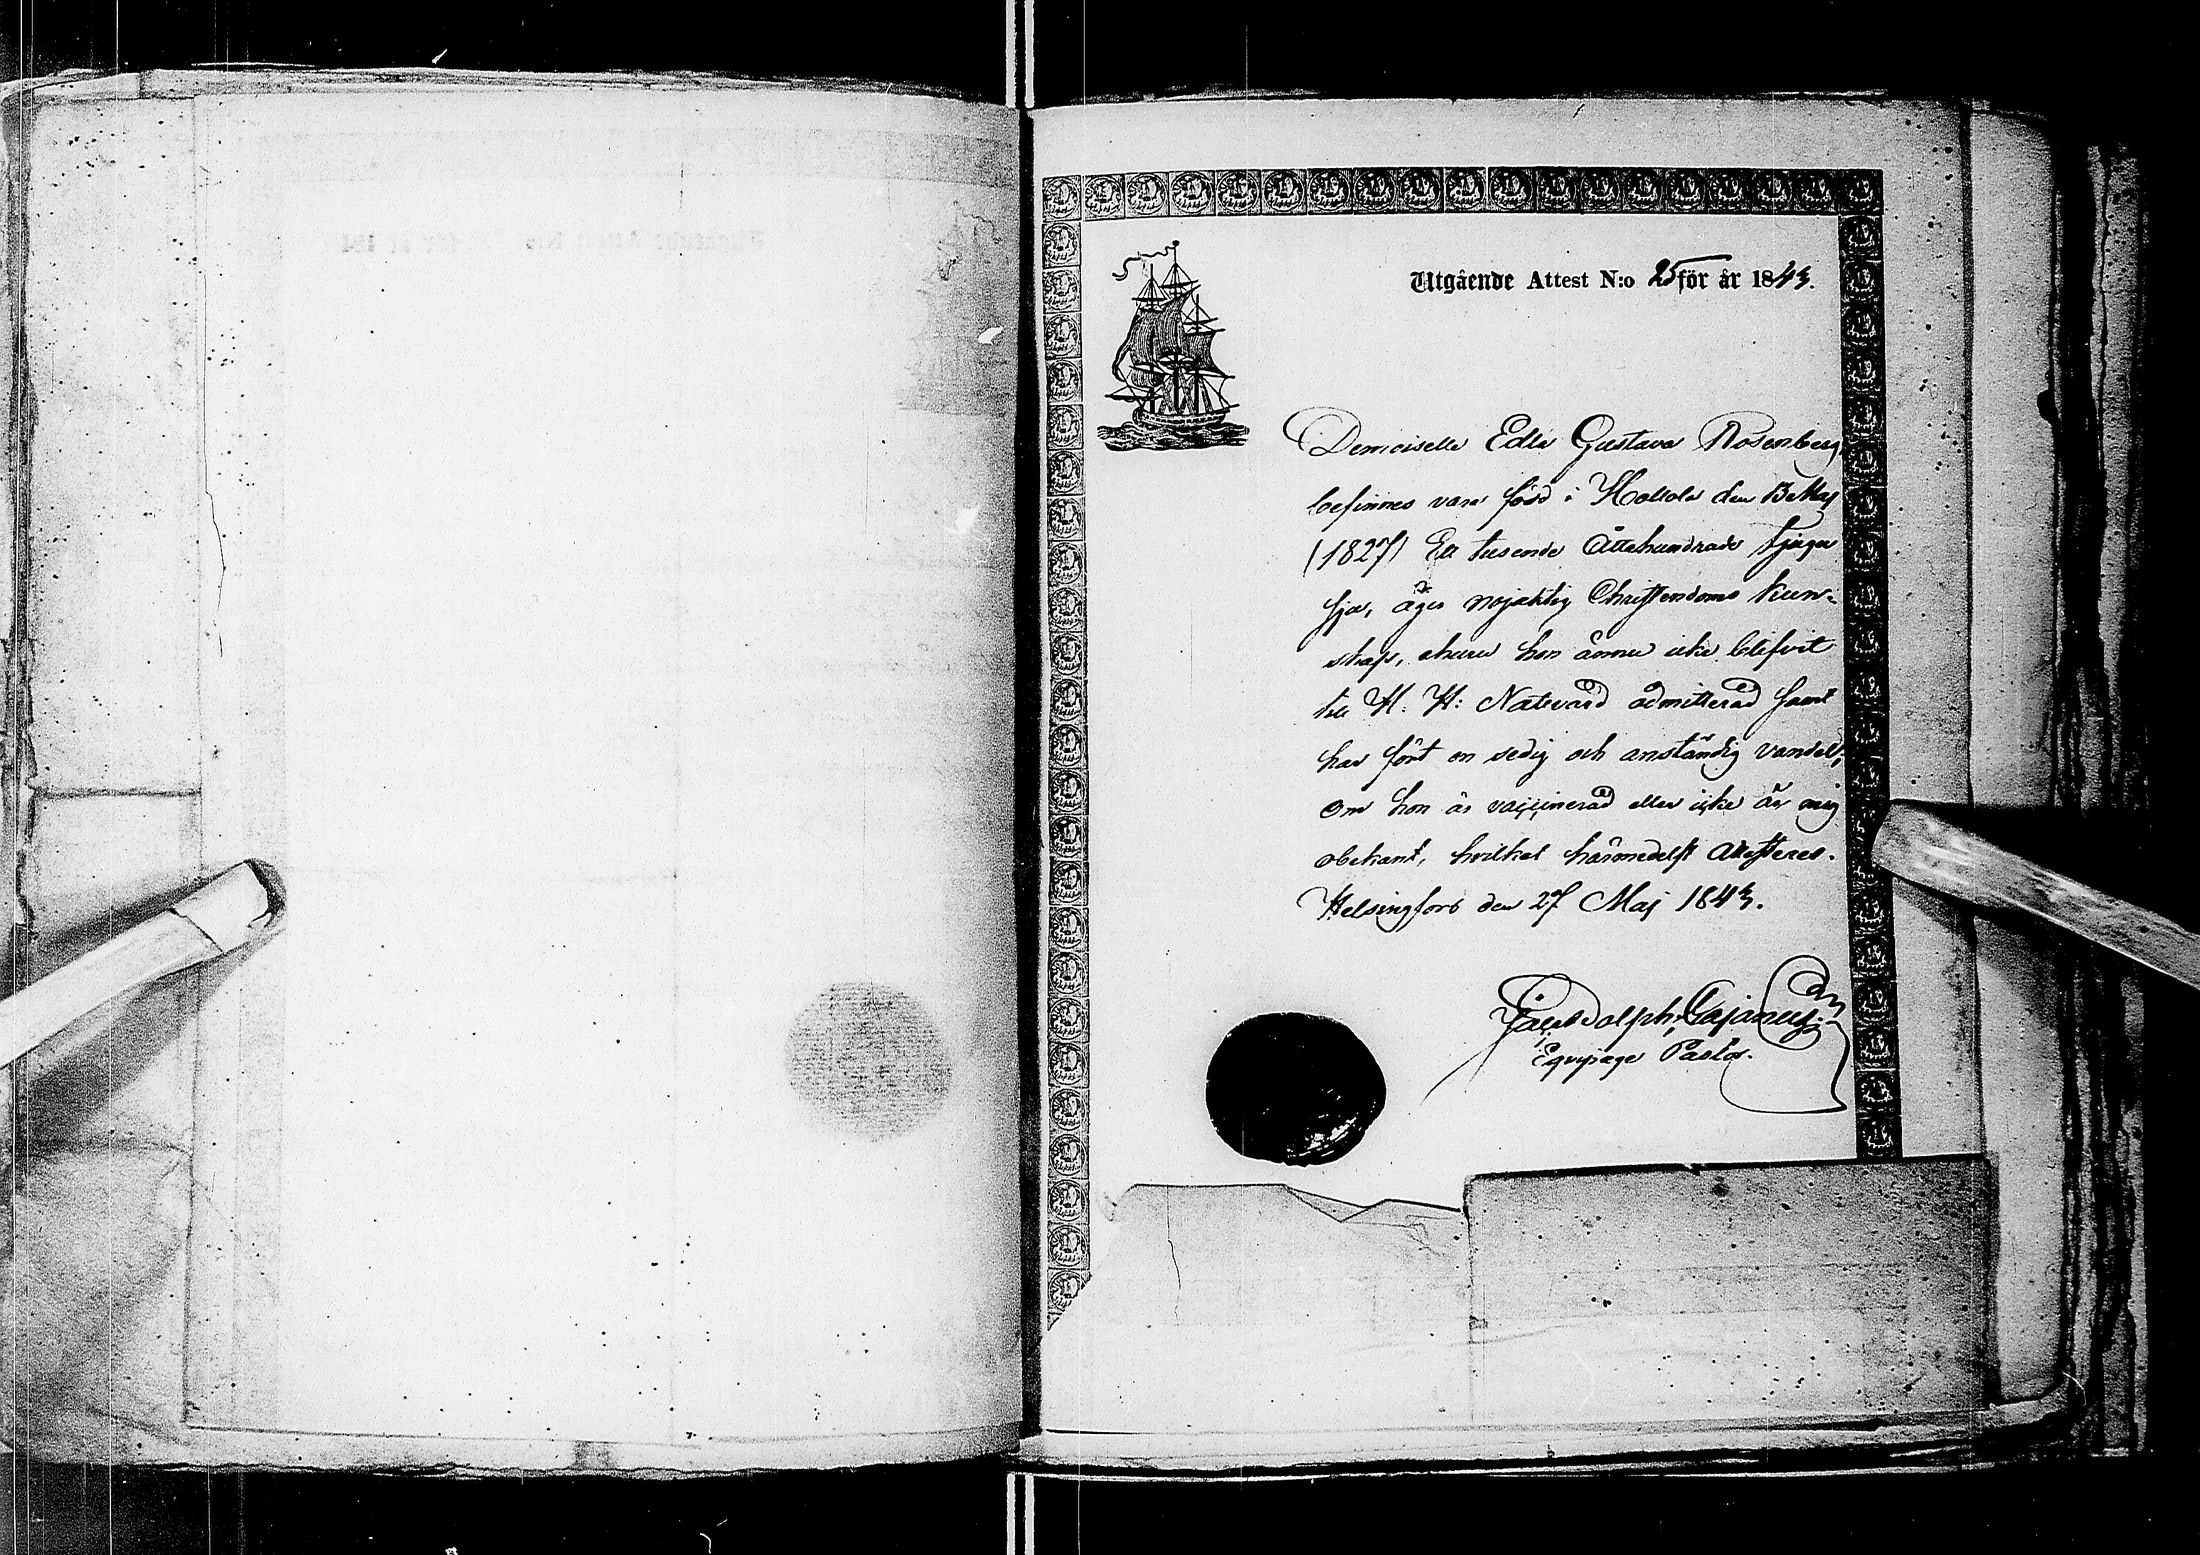 Utgående Attest N:o 25 för år 1843.
Demoiselle Edla Gustava Rosenberg,
befinnes vara född i Hollola den 13 Maj
(1827) Ett tusende Åttahundrade tjugu
sju, äger nöjaktig Christendoms kun-
skap, ehuru hon ännu icke blifvit
till H. H: Nattvard admitterad samt
har fört en sedig och anständig vandel,
om hon är vaccinerad eller icke är mig
obekant, hvilket härmedelst attesteres.
Helsingfors den 27 Maj 1843.
Adolph Cajanus
Equipage Pastor.